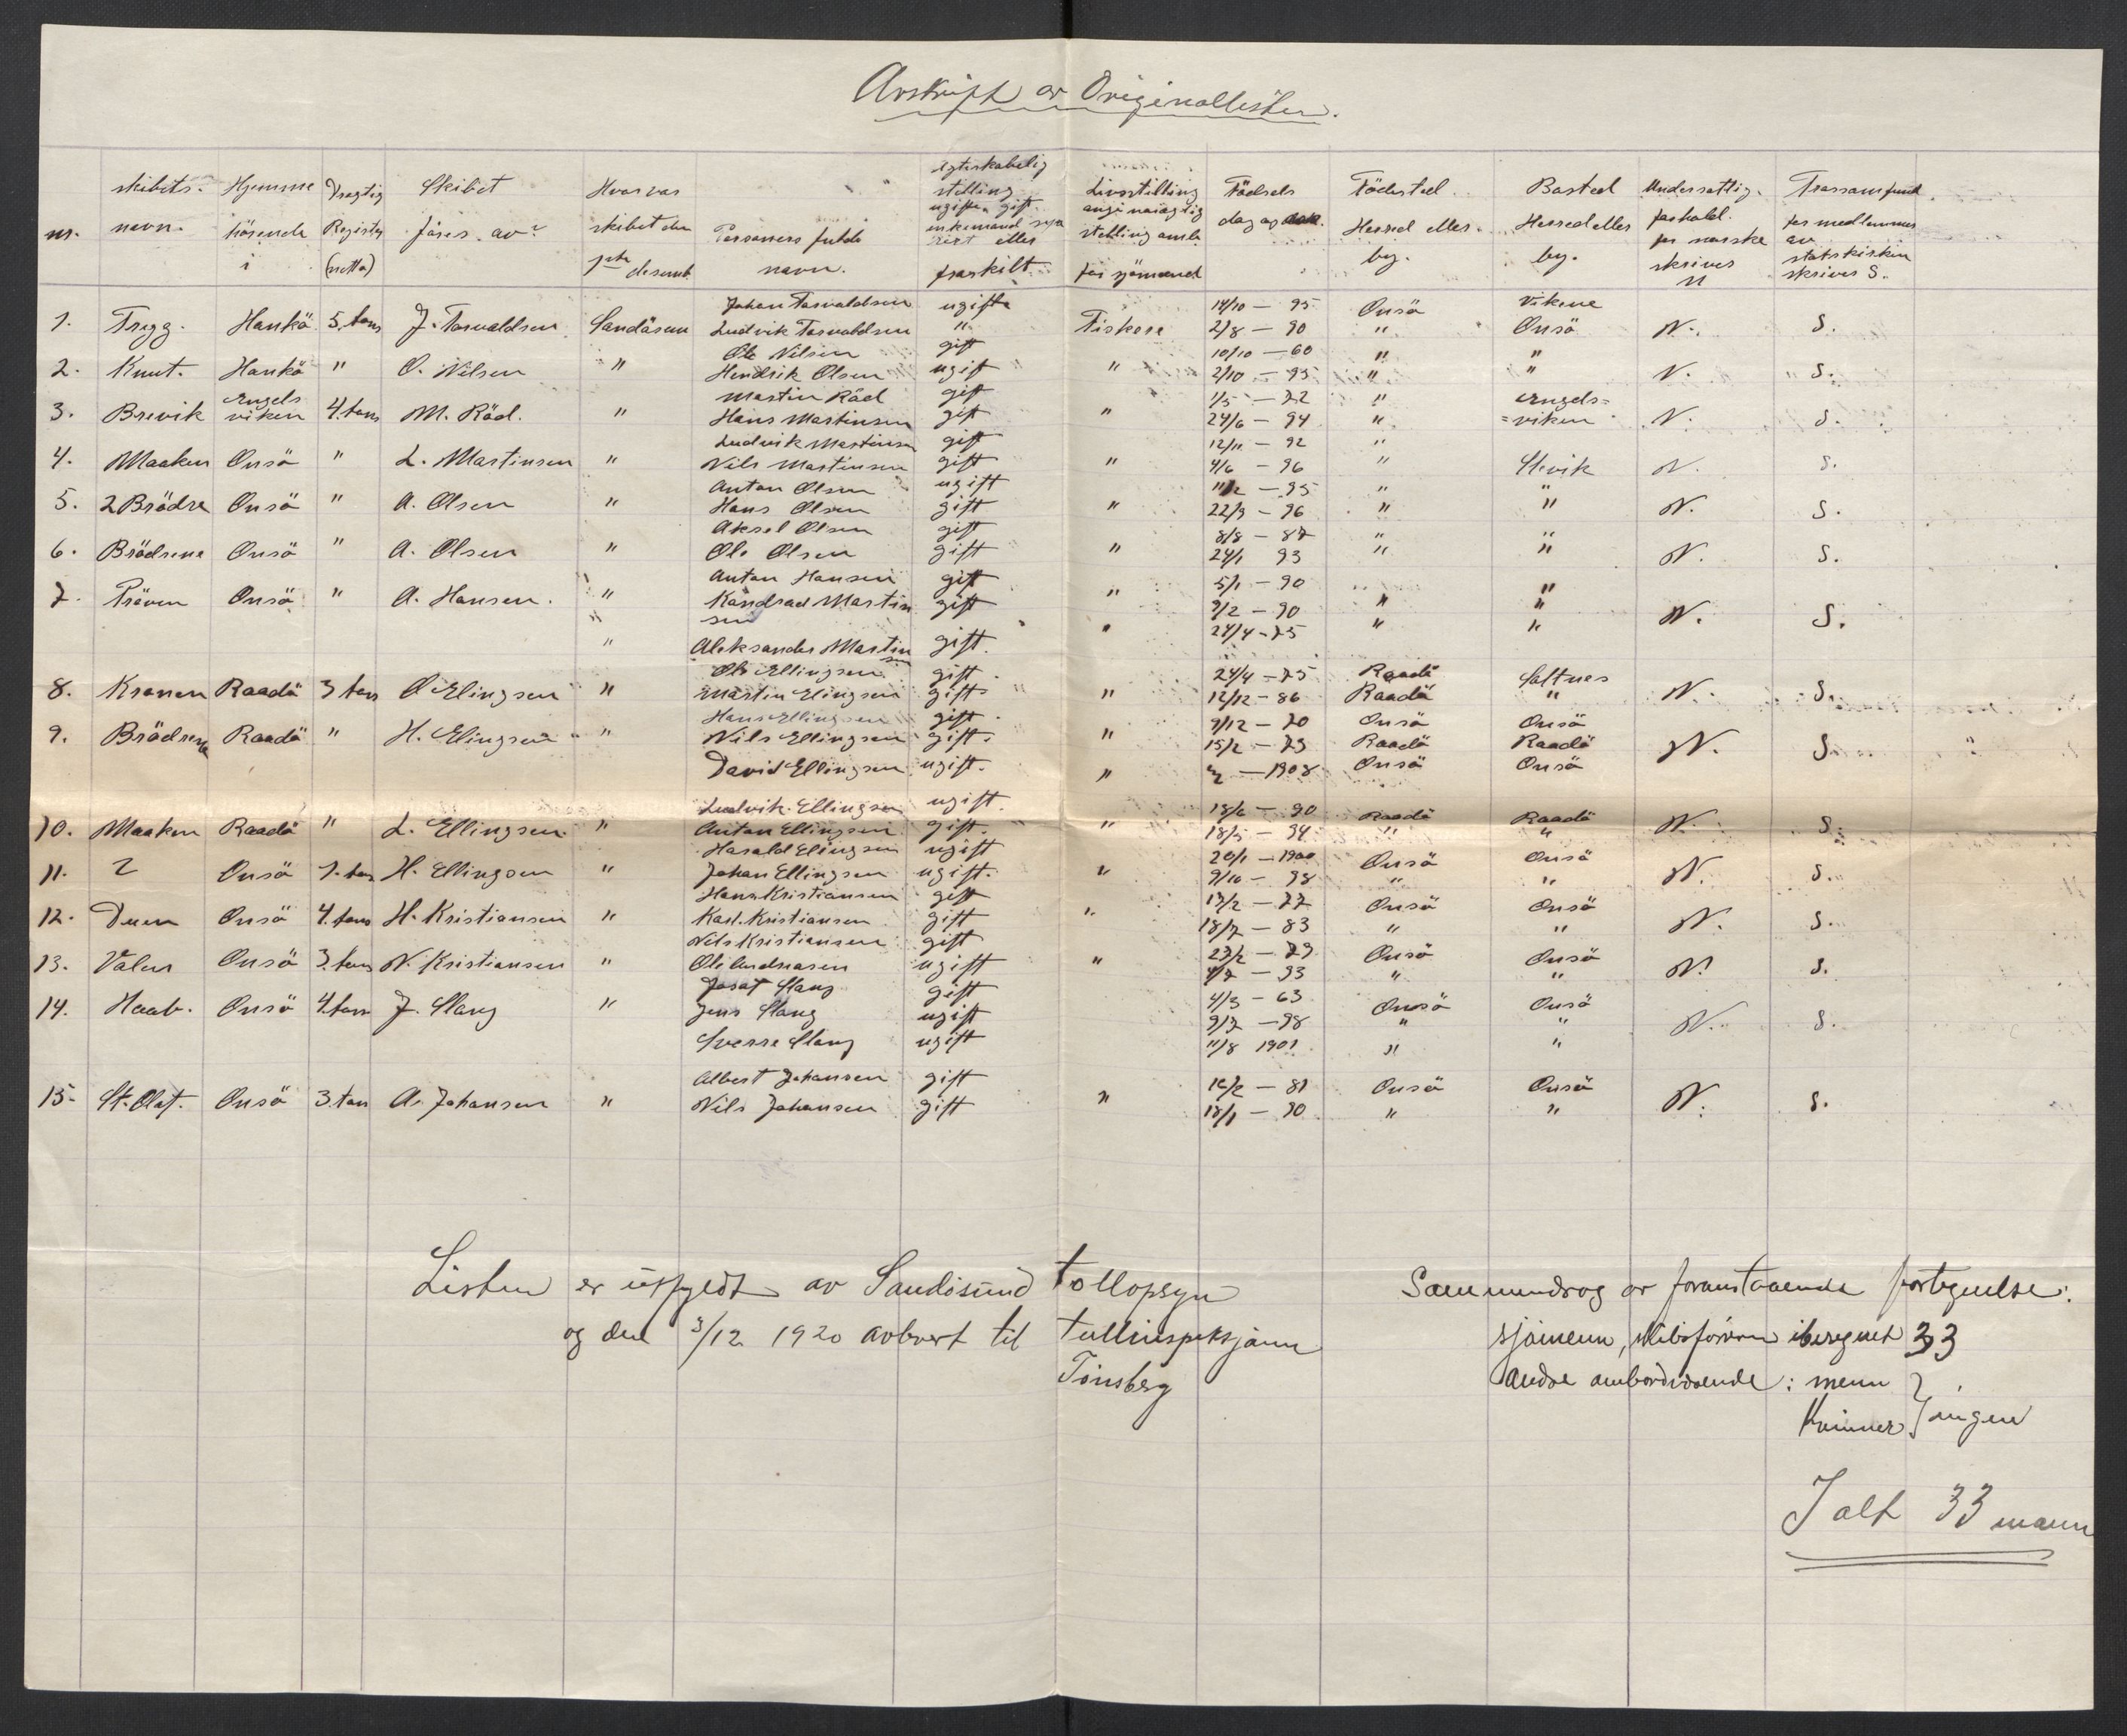 Avskrift av Originallisten.
nr. | skibets navn. | Hjemme hörende i | Dregtig Register (netto) | Skibet föres av? | Hvor var skibet den 1ste desemb. | Personers fulde navn. | egteskabelig stilling ugifte, gift enkemand sepa rert eller fraskilt. | Livsstilling angi nöiagtig stilling ombo for sjömænd | Födsels dag og aar. | Födested Herred eller by. | Bosted Herred eller by. | Undersotlig. forhold. for norske skrives N | Trossamfund for medlemmer av statskirken skrives S.
Johan Torvaldsen | ugifte | 14/10 — 95 | Onsö | Vikene
1. | Trygg. | Hankö | 5. tons | J. Torvaldsen | Sandösun | Ludvik Torvaldsen | " | Fiskere | 2/8 — 90 | " | Onsö | N. | S.
Ole Nilsen | gift | 10/10 — 60 | " | "
2. | Knut. | Hankö | " | O. Nilsen | " | Hendrik Olsen | ugift | " | 2/10 — 95 | " | " | N. | S.
Martin Röd | gift | 1/5 — 72 | " | Engels=
3. | Brevik | Engels viken | 4. tons | M. Röd. | " | Hans Martinsen | gift | " | 24/6 — 94 | " | =viken | N. | S.
Ludvik Martinsen | gift | 12/11 — 92 | "
4. | Maaken | Onsö | " | L. Martinsen | " | Nils Martinsen | gift | " | 4/6 — 96 | " | Slevik | N. | S.
Anton Olsen | ugift | — 95 | " | "
5. | 2 Brödre | Onsö | " | A. Olsen | " | Hans Olsen | gift | " | 22/9 — 96 | " | " | N. | S.
Aksel Olsen | gift | 8/8 — 87 | " | "
6. | Brödrene | Onsö | " | A. Olsen | " | Ole Olsen | gift | " | 24/1 93 | " | " | N. | S.
Anton Hansen | gift | 5/1 — 90 | "
7. | Pröven | Onsö | " | A. Hansen. | " | Kondrad Martin sen | gift | " | 9/2 — 90 | " | " | N. | S.
" | Aleksander Martin sen | gift. | " | 24/4 - 75 | " | "
Ole Ellingsen | gift. | 24/4 — 75 | Raadö | Saltnes
8. | Kronen | Raadö | 3 tons | O Elingsen | " | Martin Elingsen | gift | " | 12/12 — 86 | Raadö | " | N. | S.
Hans Ellingsen | gift. | 9/12 — 70 | Onsö | Onsö
9. | Brödrene | Raadö | " | H. Elingsen | " | Nils Ellingsen | gift. | " | 15/2 — 73 | Raadö | Raadö | N. | S.
David Ellingsen | ugift. | " | — 1908 | Onsö | Onsö
Ludvik Ellingsen | ugift. | 18/6 — 90 | Raadö | Raadö
10. | Maaken | Raadö | " | L. Ellingsen. | " | Anton Ellingsen | gift. | " | 18/5 — 94 | " | " | N. | S.
Harald Elingsen | ugift | 20/1 — 1900 | Onsö | Onsö
11. | 2 | Onsö | 1. tons | H. Ellingsen | " | Johan Ellingsen | ugift. | " | 9/10 — 98 | " | " | N. | S.
Hans Kristiansen | gift | 13/2 — 77 | Onsö | Onsö
12. | Duen | Onsö | 4. tons | H. Kristiansen | " | Karl. Kristiansen | gift | " | 18/7 — 83 | " | " | N. | S.
Nils Kristiansen | gift | 23/2 — 79 | Onsö | Onsö
13. | Valen | Onsö | 3. tons | N. Kristiansen | " | Ole Andreasen | ugift | " | — 93 | " | " | N. | S.
Josef Slang | gift | 4/3 — 63 | Onsö | Onsö
14. | Haab. | Onsö | 4. tons | J. Slang | " | Jens Slang | ugift | 9/7 — 98 | " | " | N. | S.
Sverre Slang | ugift | 11/8 1901 | " | "
Albert Johansen | gift | 16/2 — 81 | Onsö | Onsö
15. | St. Olaf. | Onsö | 3. tons | A. Johansen | " | Nils Johansen | gift | " | 18/1 — 90 | " | " | N. | S.
Listen er utfyldt av Sandösund tollopsyn
og den 3/12 1920 avlevert til tollinspektjonen
Tönsberg
Sammendrag av foranstaaende fortegnelse:
sjömenn, skibsföreren iberegnet 33
andre ombordværende: menn } ingen
Kvinner
I alt 33 mann